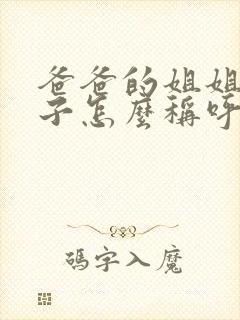 爸爸的姐姐
子怎麼稱呼
碼字入魔